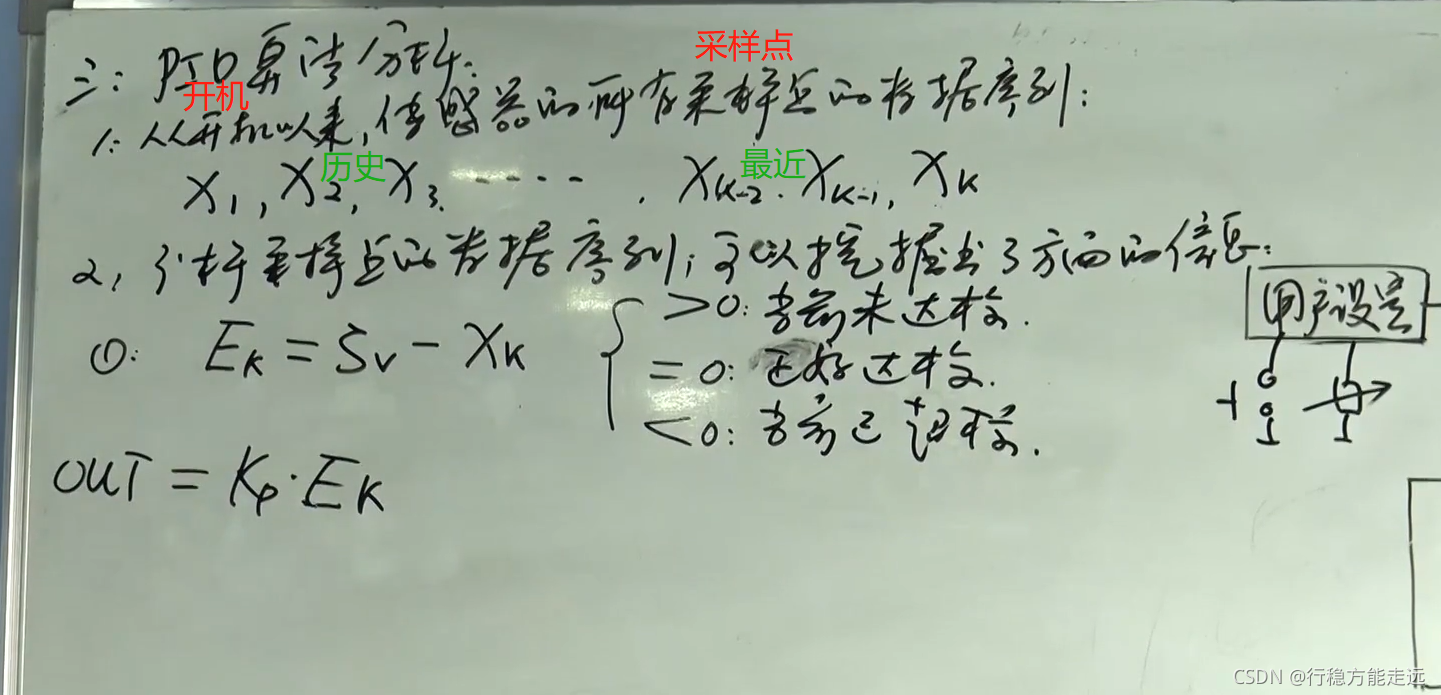 采样点
三: PID算法分析:
开机
1: 从开机以来,传感器的所有采样点的数据序列:
历史 最近
X1, X2, X3. ····· . XK-2. XK-1, XK
2, 分析采样点的数据序列;可以挖掘出3方面的信息:
①: EK = SV - XK
>0: 当前未达标.
=0: 正好达标.
<0: 当前已超标.
用户设置
OUT = KP·EK
CSDN @行稳方能走远